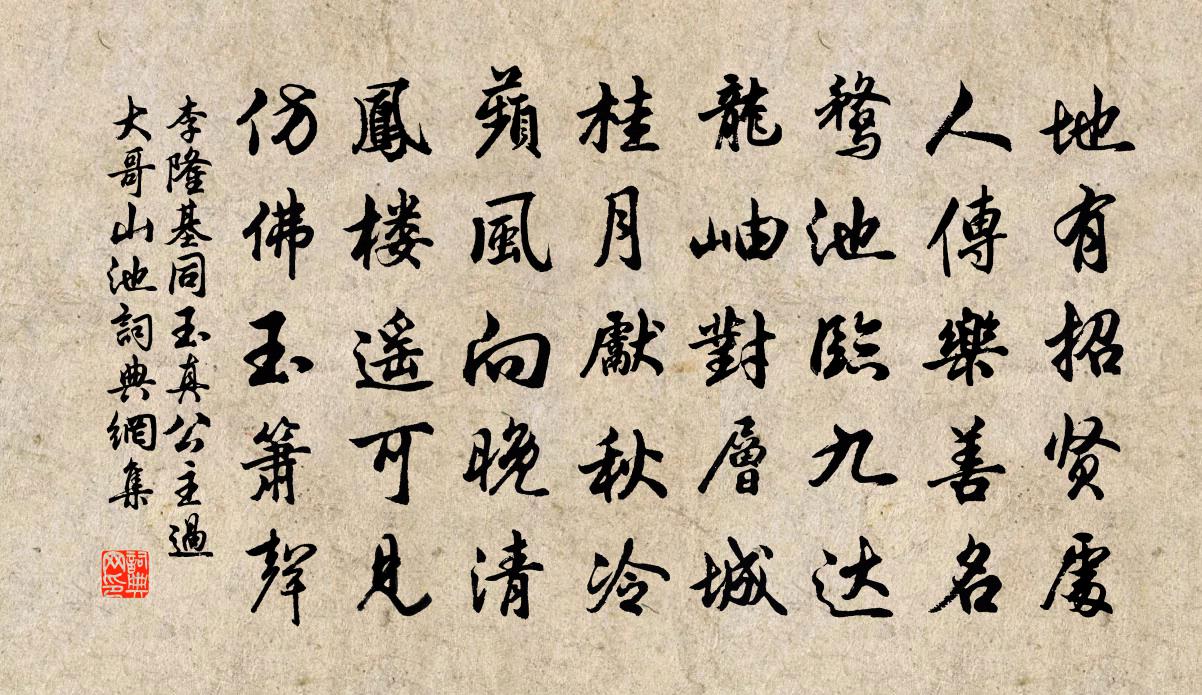 地有招贤處
人傳樂善名
鶩池臨九达
龍岫對層城
桂月獻秋冷
蘋風向晚清
鳳楼遥可見
仿佛玉簫聲
李隆基同玉真公主過
大哥山池詞典網集
詞典
网印